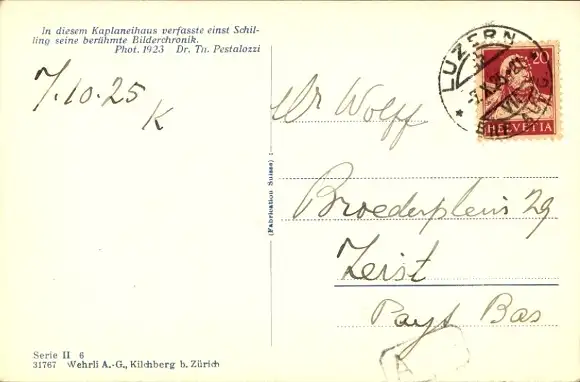 In diesem Kaplaneihaus verfasste einst Schil-
ling seine berühmte Bilderchronik.
Phot. 1923 Dr. Th. Pestalozzi
7.10.25
K
LUZERN
20
HELVETIA
Mr Wolff
Broederplein 29
Zeist
Pays Bas
(Fabrication Suisse)
A
Serie II 6
31767 Wehrli A.-G., Kilchberg b. Zürich